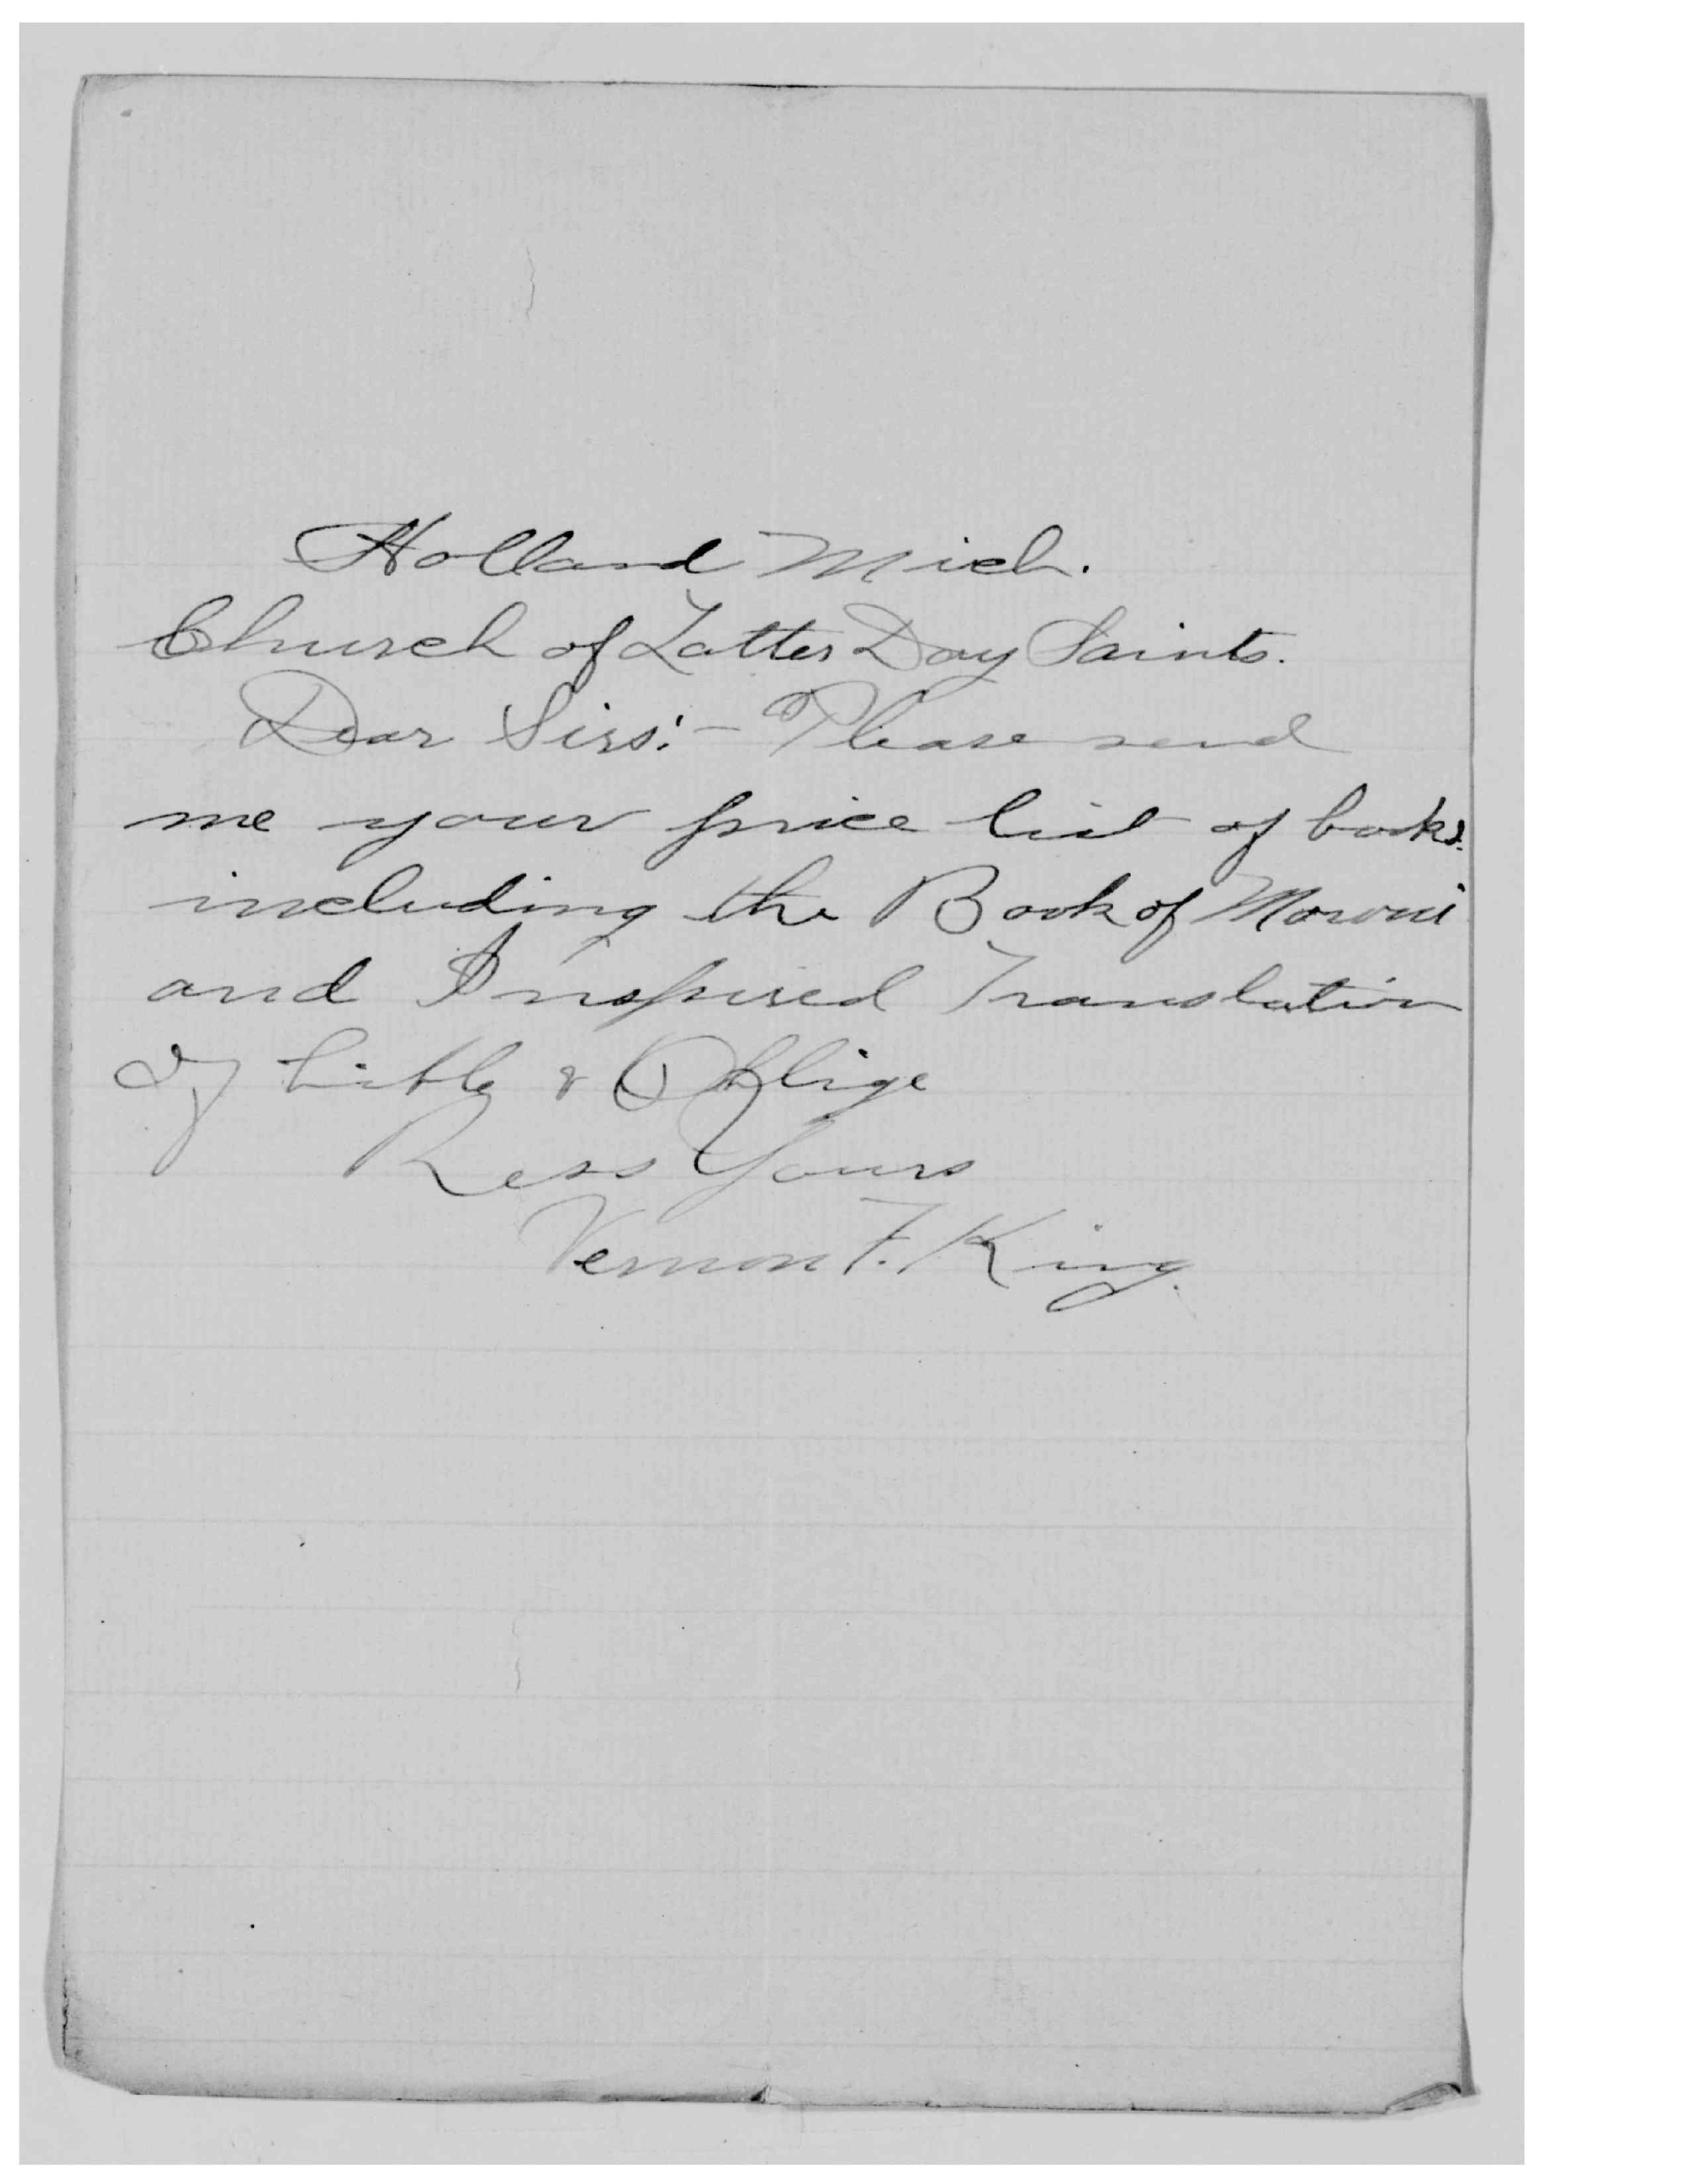 Holland Mich.
Church of Latter Day Saints.
Dear Sirs:- Please send
me your price list of books.
including the Book of Moroni
and Inspired Translation
of bible & Oblige
Ress Yours
Vernon F. King.